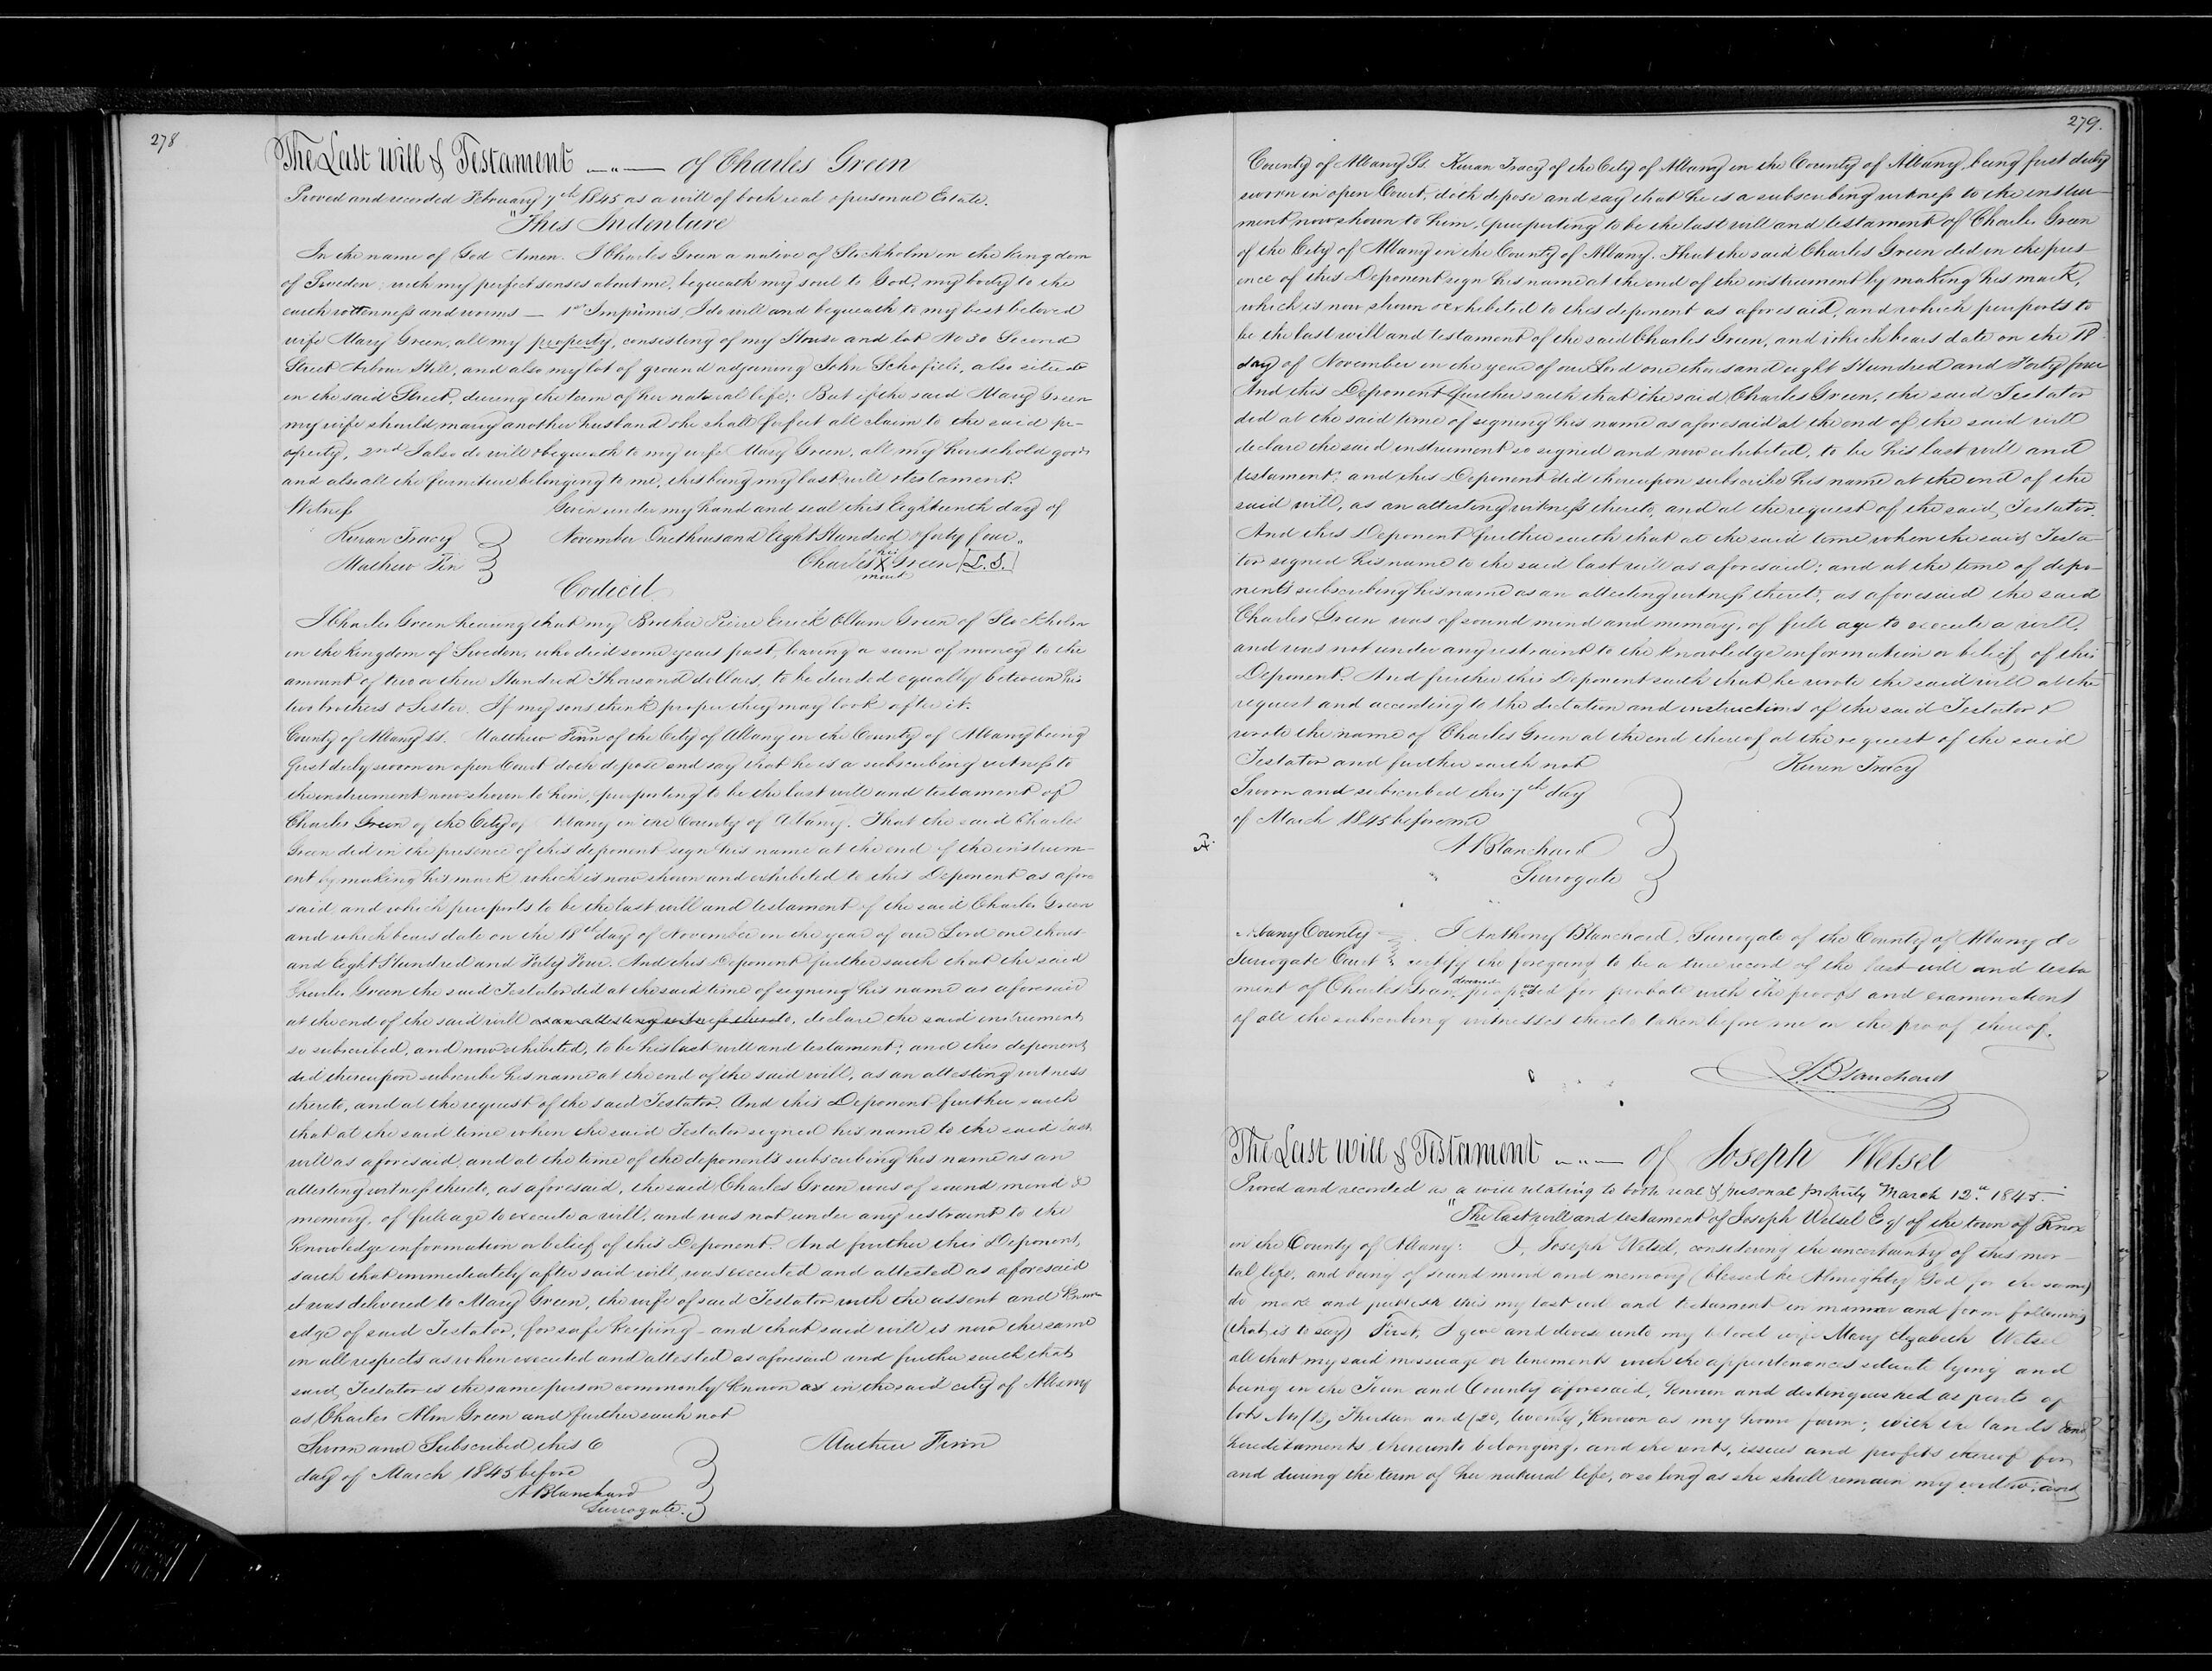 278
The Last Will & Testament of Charles Green
Proved and recorded February 7th 1845 as a will of both real & personal Estate.
"This Indenture
In the name of God Amen. I Charles Green a native of Stockholm in the Kingdom
of Sweden; with my perfect senses about me, bequeath my soul to God, my body to the
earth rottenness and worms — 1st Imprimis, I do will and bequeath to my best beloved
wife Mary Green, all my property, consisting of my House and lot No 30 Second
Street Arbour Hill, and also my lot of ground adjoining John Schofield, also situate
in the said Street, during the term of her natural life; But if the said Mary Green
my wife should marry another husband she shall forfeit all claim to the said pr-
operty, 2nd I also do will & bequeath to my wife Mary Green, all my household goods
and also all the furniture belonging to me, this being my last will & testament.
Witness Given under my hand and seal this Eighteenth day of
Kieran Tracy November One thousand Eight Hundred & forty four.
Mathew Fin Charles his X mark Green [L.S.]
Codicil.
I Charles Green hearing that my Brother Pierre Erick Ollum Green of Stockholm
in the Kingdom of Sweden, who died some years past, leaving a sum of money to the
amount of two or three Hundred Thousand dollars, to be divided equally between his
two brothers & Sister. If my sons think proper they may look after it.
County of Albany ss. Matthew Finn of the City of Albany in the County of Albany being
first duly sworn in open Court doth depose and say that he is a subscribing witness to
the instrument now shown to him, purporting to be the last will and testament of
Charles Green of the City of Albany in the County of Albany. That the said Charles
Green did in the presence of this deponent sign his name at the end of the instrum-
ent by making his mark which is now shown and exhibited to this Deponent as afore
said and which purports to be the last will and testament of the said Charles Green
and which bears date on the 18th day of November in the year of our Lord one thous-
and Eight Hundred and Forty Four. And this Deponent further saith that the said
Charles Green the said Testator did at the said time of signing his name as aforesaid
at the end of the said will as an attesting witness thereto, declare the said instrument
so subscribed, and now exhibited, to be his last will and testament; and this deponent
did thereupon subscribe his name at the end of the said will, as an attesting witness
thereto, and at the request of the said Testator. And this Deponent further saith
that at the said time when the said Testator signed his name to the said last
will as aforesaid, and at the time of the deponent's subscribing his name as an
attesting witness thereto, as aforesaid, the said Charles Green was of sound mind &
memory, of full age to execute a will, and was not under any restraint to the
knowledge information or belief of this Deponent. And further this Deponent
saith that immediately after said will was executed and attested as aforesaid
it was delivered to Mary Green, the wife of said Testator with the assent and know
edge of said Testator, for safe keeping — and that said will is now the same
in all respects as when executed and attested as aforesaid and further saith that
said Testator is the same person commonly known as in the said city of Albany
as Charles Alm Green and further saith not
Sworn and Subscribed this 6 Mathew Finn
day of March 1845 before
A Blanchard
Surrogate.
279.
County of Albany Ss. Kieran Tracy of the City of Albany in the County of Albany, being first duly
sworn in open Court, doth depose and say that he is a subscribing witness to the instru-
ment now shown to him, purporting to be the last will and testament of Charles Green
of the City of Albany in the County of Albany. That the said Charles Green did in the pres-
ence of this Deponent sign his name at the end of the instrument by making his mark,
which is now shown & exhibited to this deponent as aforesaid, and which purports to
be the last will and testament of the said Charles Green, and which bears date on the 18
day of November in the year of our Lord one thousand eight Hundred and Forty four
And this Deponent further saith that the said Charles Green, the said Testator
did at the said time of signing his name as aforesaid at the end of the said will
declare the said instrument so signed and now exhibited, to be his last will and
testament; and this Deponent did thereupon subscribe his name at the end of the
said will, as an attesting witness thereto, and at the request of the said Testator.
And this Deponent further saith that at the said time when the said Testa-
tor signed his name to the said last will as aforesaid; and at the time of depo-
nent's subscribing his name as an attesting witness thereto, as aforesaid the said
Charles Green was of sound mind and memory, of full age to execute a will,
and was not under any restraint to the knowledge information or belief of this
Deponent. And further this Deponent saith that he wrote the said will at the
request and according to the dictation and instructions of the said Testator &
wrote the name of Charles Green at the end thereof at the request of the said
Testator and further saith not Kieran Tracy
Sworn and subscribed this 7th day
of March 1845 before me
A Blanchard
Surrogate
Albany County I Anthony Blanchard, Surrogate of the County of Albany do
Surrogate Court certify the foregoing to be a true record of the last will and testa
ment of Charles Green deceased proposed for probate with the proofs and examinations
of all the subscribing witnesses thereto taken before me on the proof thereof.
A Blanchard
The Last Will & Testament of Joseph Wetsel
Proved and recorded as a will relating to both real & personal property March 12th 1845.
"The last will and testament of Joseph Wetsel Esqr of the town of Knox
in the County of Albany: I, Joseph Wetsel, considering the uncertainty of this mor-
tal life, and being of sound mind and memory (blessed be Almighty God for the same)
do make and publish this my last will and testament in manner and form following
(that is to say) First, I give and devise unto my beloved wife Mary Elizabeth Wetsel
all that my said messuage or tenements with the appurtenances situate lying and
being in the Town and County aforesaid, known and distinguished as parts of
lots No (13) Thirteen and (20) twenty, known as my home farm; with the lands and
hereditaments thereunto belonging, and the rents, issues and profits thereof for
and during the term of her natural life, or so long as she shall remain my widow; and